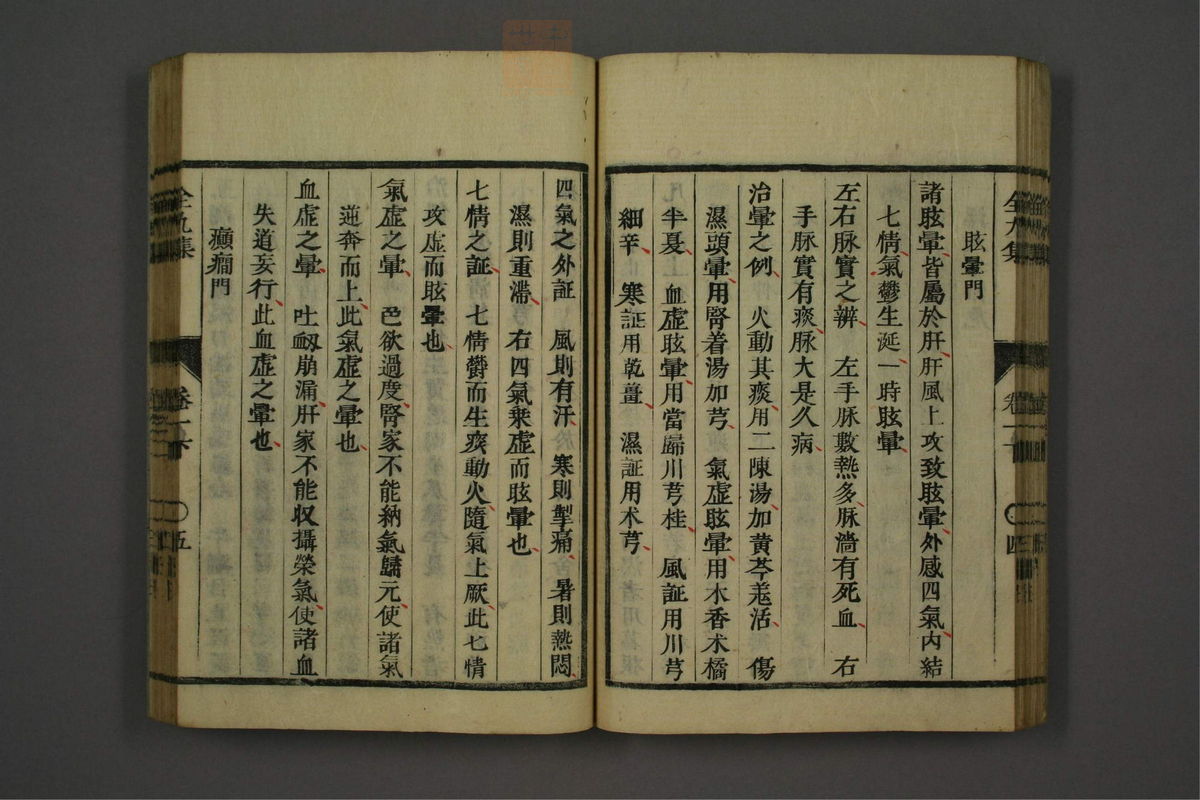 眩暈門
諸眩暈皆屬於肝肝風上攻致眩暈外感四氣內結
七情氣鬱生涎一時眩暈
左右脉實之辨　左手脉數熱多脉濇有死血　右
手脉實有痰脉大是久病
治暈之例　火動其痰用二陳湯加黄芩羗活　傷
濕頭暈用腎着湯加芎　氣虛眩暈用木香术橘
半夏　血虛眩暈用當歸川芎桂　風証用川芎
細辛　寒証用乾薑　濕証用术芎
四氣之外証　風則有汗　寒則掣痛　暑則熱悶
濕則重滯　右四氣乘虛而眩暈也
七情之証　七情欝而生痰動火隨氣上厥此七情
攻虛而眩暈也
氣虛之暈　色欲過度腎家不能納氣歸元使諸氣
逆奔而上此氣虛之暈也
血虛之暈　吐衂崩漏肝家不能収攝榮氣使諸血
失道妄行此血虛之暈也
癲癎門
全九集
卷一
五
全九集
四